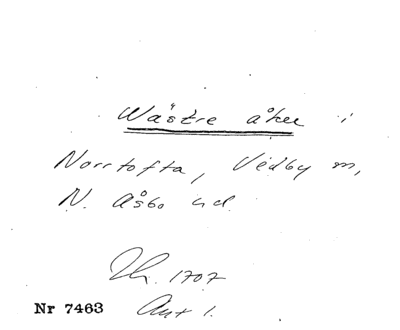 Wästre åker i
Norrtofta, Vedby m,
N. Åsbo hd.
Th. 1707
Akt 1.
Nr 7463